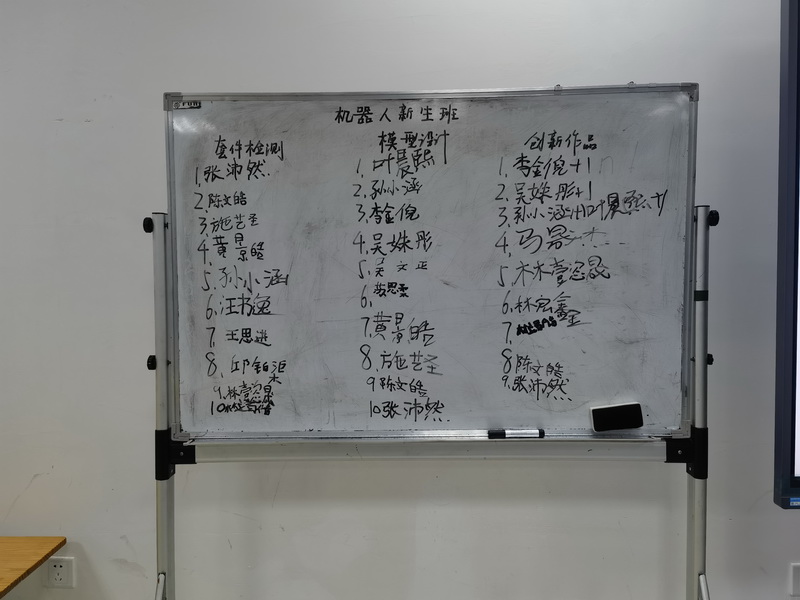 机器人新生班
套件检测
1.张沛然.
2.陈文皓
3.施艺圣
4.黄景皓
5.孙小涵
6.汪书逸
7.王思逃
8.邱铂
9.林壹
10.
模型设计
1.叶晨熙
2.孙小涵
3.李金倪
4.吴姝彤
5.吴文正
6.思柔
7.黄景皓
8.施艺圣
9.陈文皓
10张沛然.
创新作品
1.李金倪+1
2.吴姝彤+1
3.孙小涵+1叶晨熙
4.马
5.林壹
6.林宏鑫
7
8陈文皓
9.张沛然.